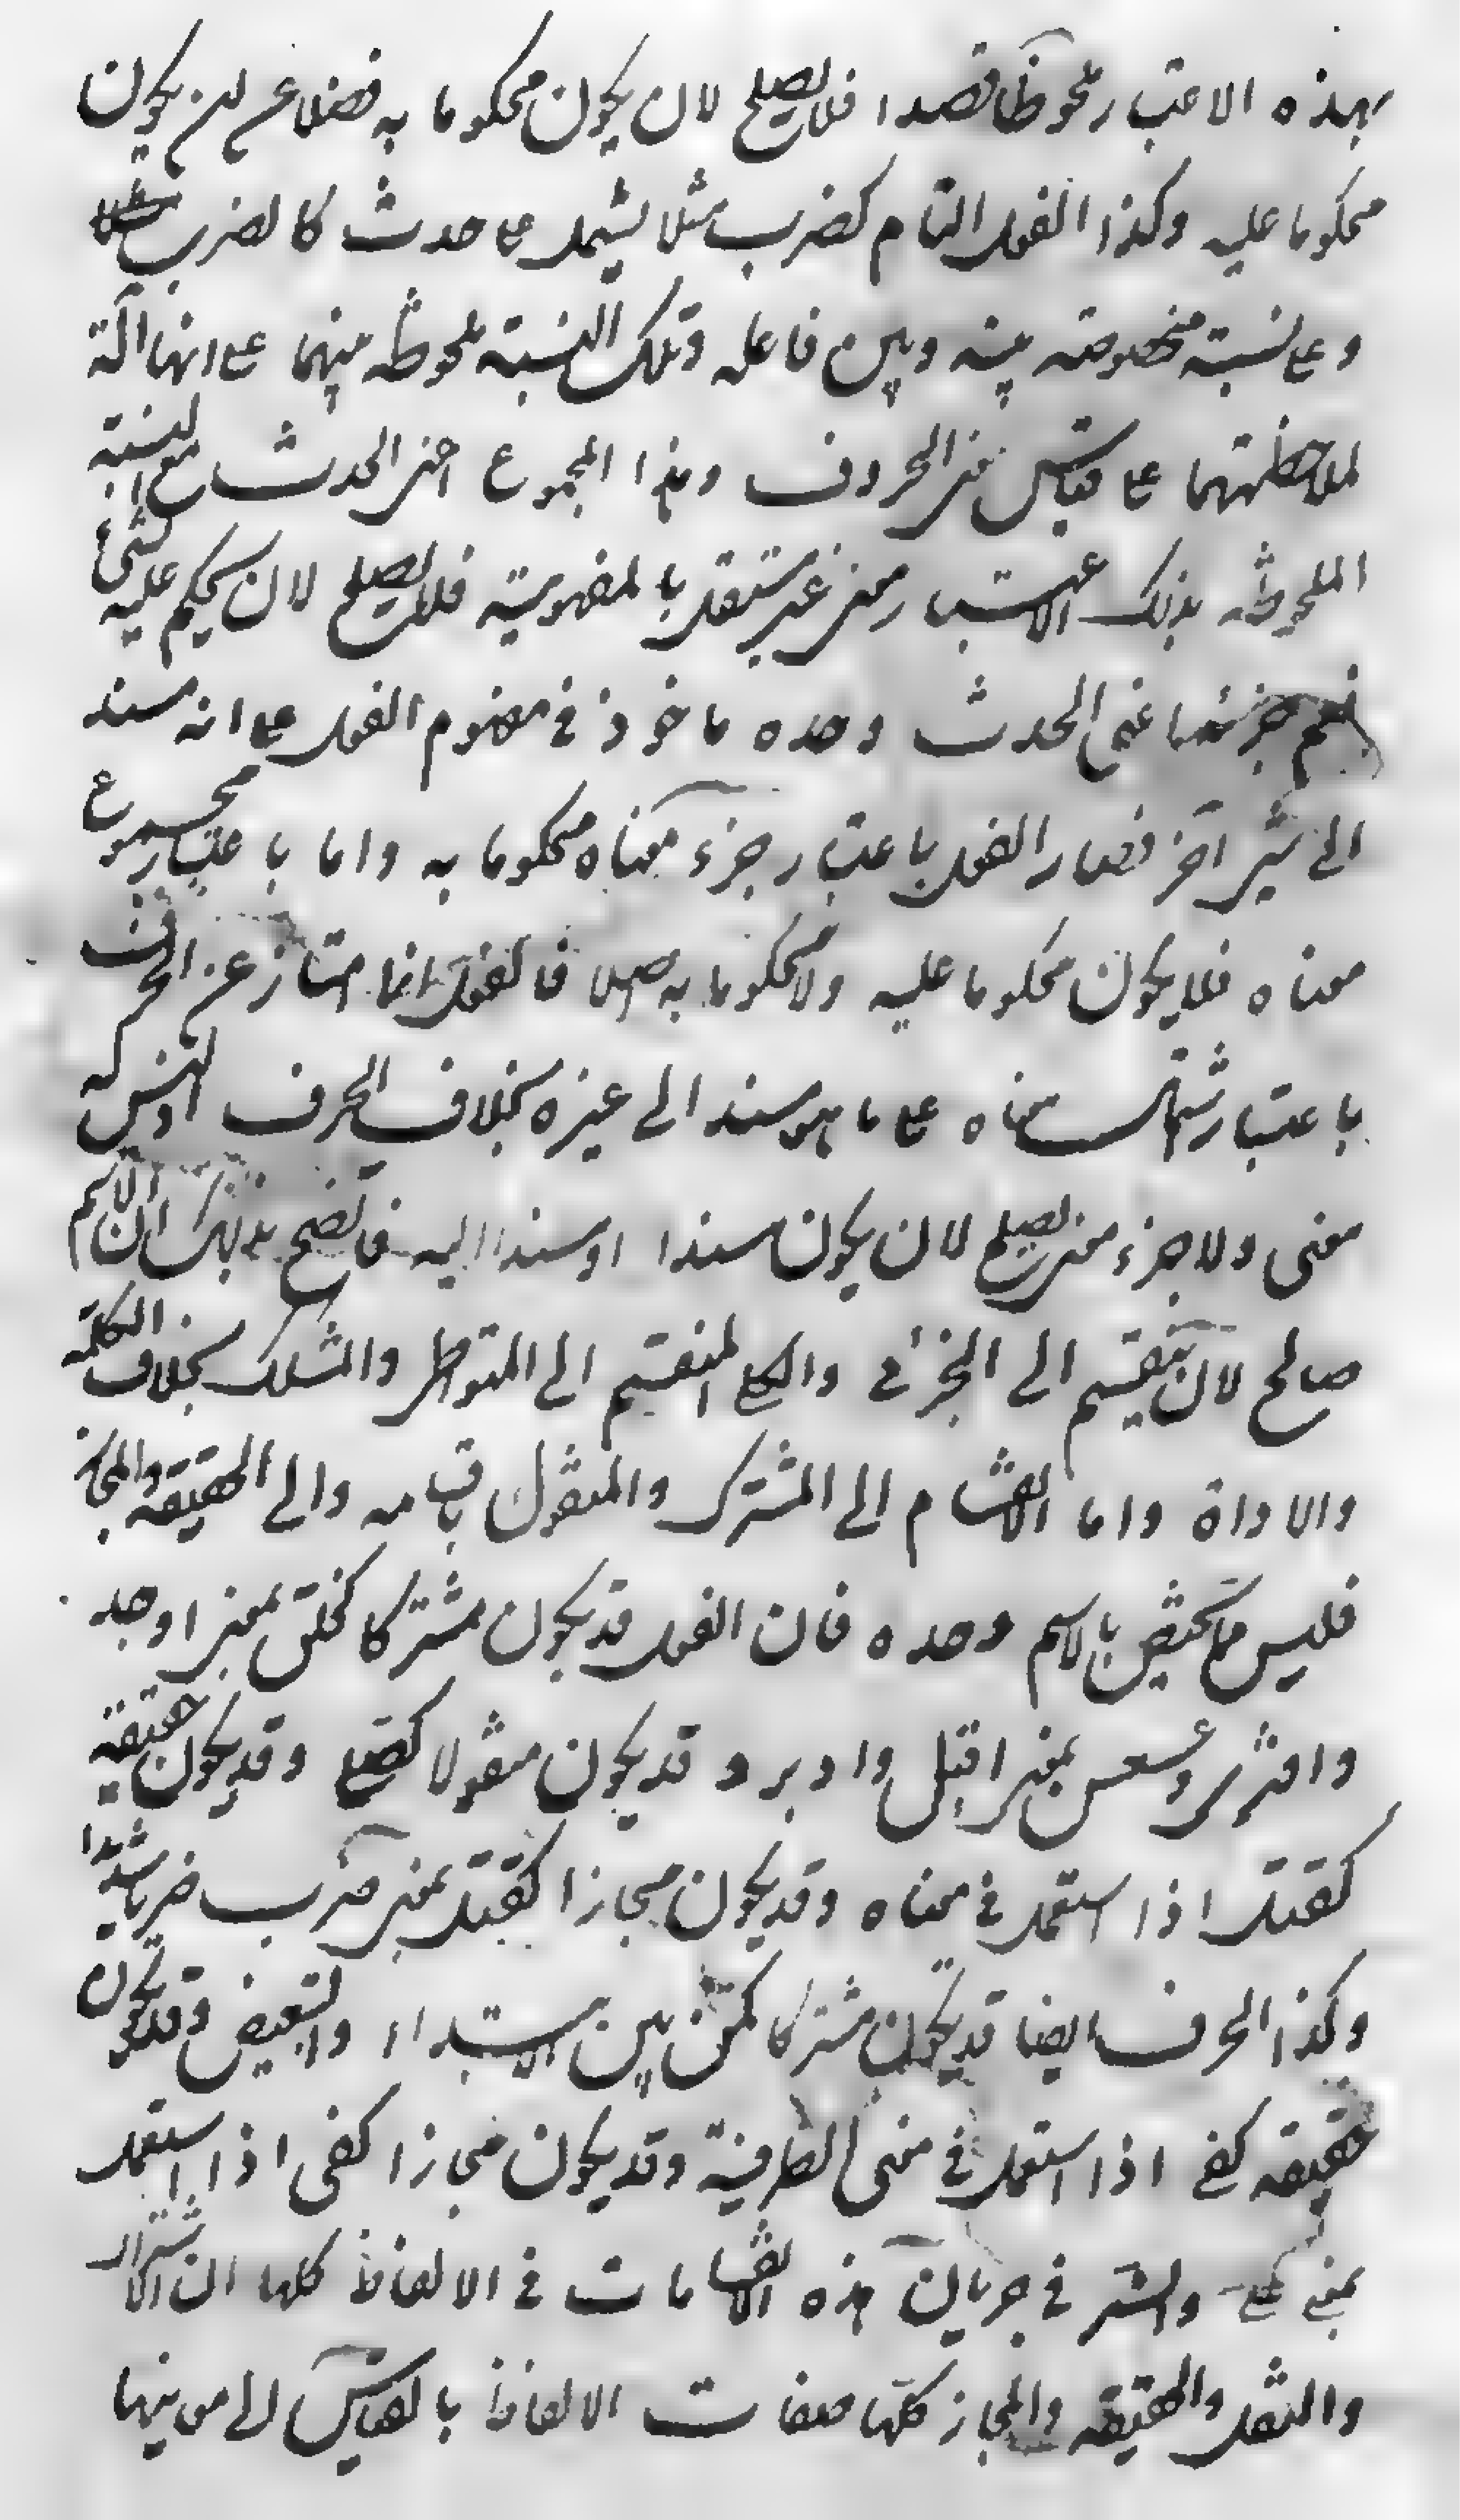 بهذه الاعتبار ملحوظا قصدا فلا يصلح لان يكون محكوما به فضلا عن ان يكون
محكوما عليه وكذا الفعل التام كضرب مثلا يشتمل على حدث كالضرب
وعلى نسبة مخصوصة بينه وبين فاعله وتلك النسبة ملحوظة بينهما على انها آلة
لملاحظتهما على قياس معنى الحروف وهذا المجموع اعنى الحدث مع النسبة
الملحوظة بذلك الاعتبار معنى غير مستقل بالمفهومية فلا يصلح لان يحكم عليه بشئ
نعم جزئه اعنى الحدث وحده ماخوذ في مفهوم الفعل على انه مسند
الى شئ آخر فصار الفعل باعتبار جزء معناه محكوما به واما باعتبار مجموع
معناه فلا يكون محكوما عليه ولا محكوما به اصلا فالفعل انما امتاز عن الحرف
باعتبار اشتمال معناه على ما هو مسند الى غيره بخلاف الحرف اذ ليس له
معنى ولا جزء معنى يصلح لان يكون مسندا او مسندا اليه فاتضح بذلك ان الاسم
صالح لان ينقسم الى الجزئى والكلى المنقسم الى المتواطى والمشكك بخلاف الكلمة
والاداة واما الانقسام الى المشترك والمنقول باقسامه والى الحقيقة والمجاز
فليس مما يختص بالاسم وحده فان الفعل قد يكون مشتركا كخلق بمعنى اوجد
وافترى وعسعس بمعنى اقبل وادبر و قد يكون منقولا كصلى وقد يكون حقيقة
كقتل اذا استعمل في معناه وقد يكون مجازا كقتل بمعنى ضرب ضربا شديدا
وكذا الحرف ايضا قد يكون مشتركا كمن بين الابتداء والتبعيض وقد يكون
حقيقة كفى اذا استعمل في معنى الظرفية وقد يكون مجازا كفى اذا استعمل
بمعنى على والسر في جريان هذه الانقسامات في الالفاظ كلها ان الاشتراك
والنقل والحقيقة والمجاز كلها صفات الالفاظ بالقياس الى معانيها